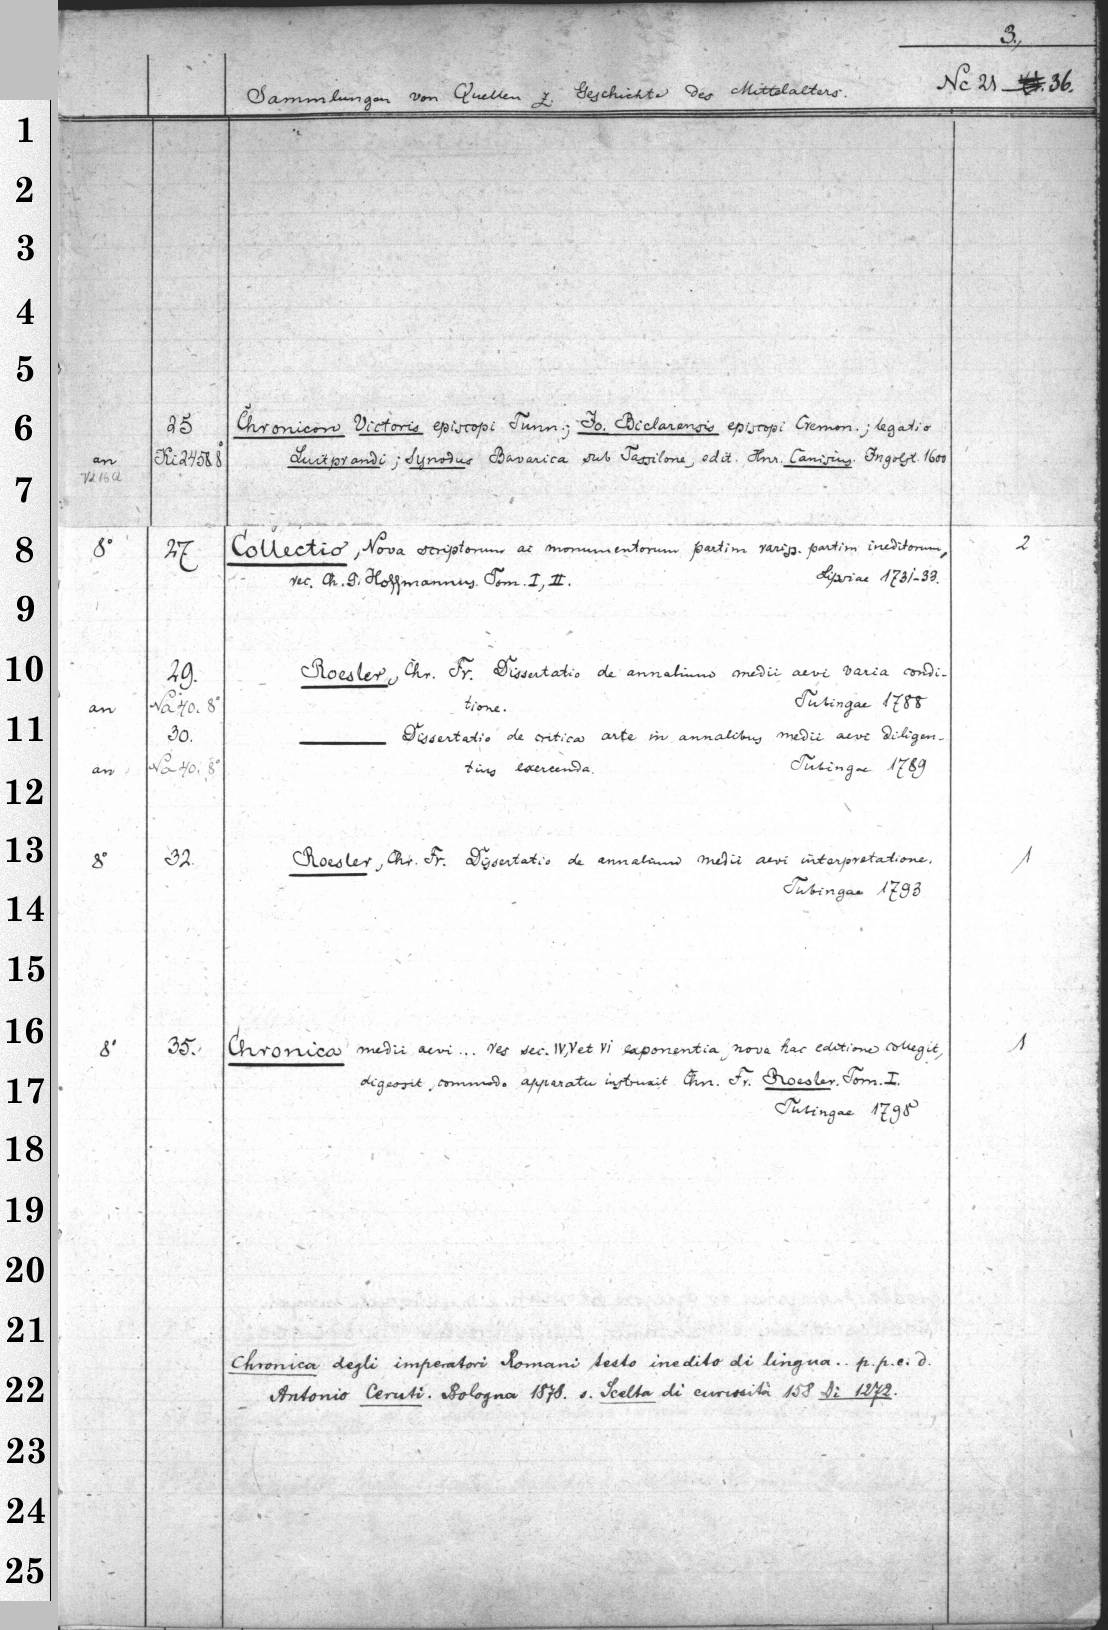 3.,
Sammlungen von Quellen z. Geschichte des Mittelalters. Nc 21 36.
1
2
3
4
5
6 25 Chronicon Victoris episcopi Tunn.; Jo. Biclarensis episcopi Cremon.; legatio
an Ki 2458 8° Luitprandi; Synodus Bavarica sub Tassilone, edit. Hnr. Canisius. Ingolst. 1600
7
8 8° 27 Collectio, Nova scriptorum ac monumentorum partim rariss. partim ineditorum, 2
rec. Ch. G. Hoffmannus. Tom. I, II. Lipsiae 1731-33.
9
10 29. Roesler, Chr. Fr. Dissertatio de annalium medii aevi varia condi-
an Na 40. 8° tione. Tubingae 1788
11 30. Dissertatio de critica arte in annalibus medii aevi diligen-
an Na 40. 8° tius exercenda. Tubingae 1789
12
13 8° 32. Roesler, Chr. Fr. Dissertatio de annalium medii aevi interpretatione. 1
Tubingae 1793
14
15
16 8° 35. Chronica medii aevi ... res sec. IV, V et VI exponentia, nova hac editione collegit, 1
17 digessit, commodo apparatu instruxit Chn. Fr. Roesler. Tom. I.
Tubingae 1798
18
19
20
21
Chronica degli imperatori Romani testo inedito di lingua .. p. p. c. d.
22 Antonio Ceruti. Bologna 1878. s. Scelta di curiosità 158 Di 1272.
23
24
25